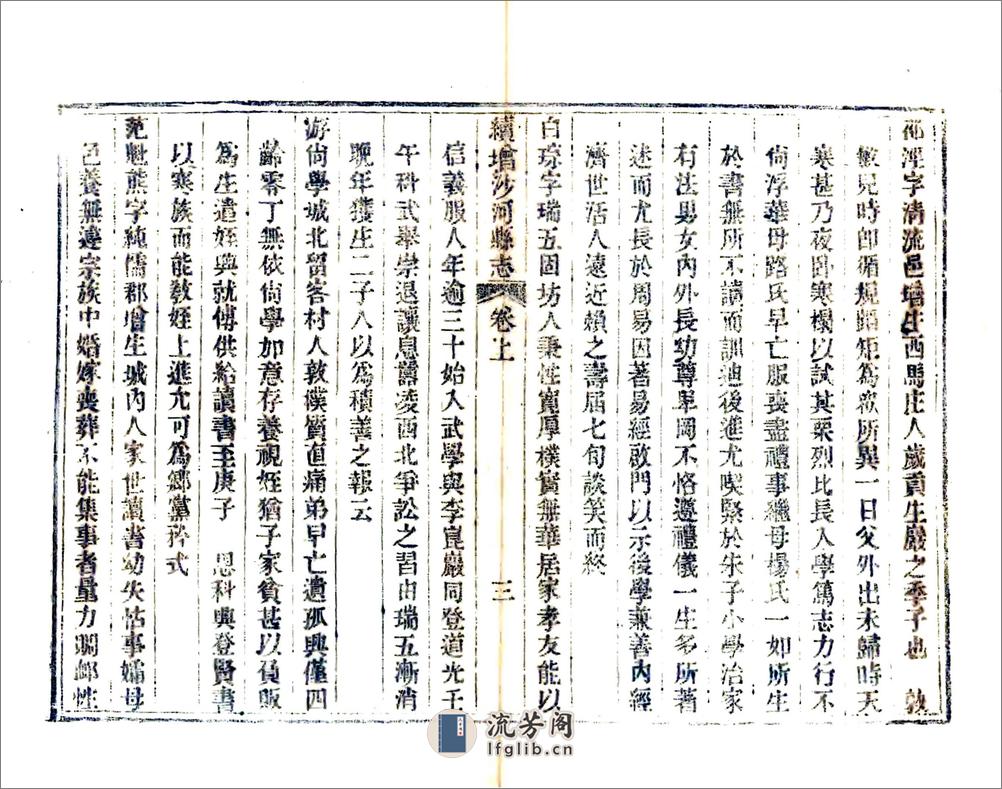 涇字清流邑增生西馬庄人歲貢生嚴之季子也
敏兒時即循規蹈矩為衆所異一日父外出未歸時天
寒甚乃夜卧寒榻以試其栗烈比長入學篤志力行不
尙浮華母路氏早亡服喪盡禮事繼母楊氏一如所生
於書無所不讀而訓迪後進尤喫緊於朱子小學治家
有法男女內外長幼尊卑罔不恪遵禮儀一生多所著
述而尤長於周易因著易經啟門以示後學兼善內經
濟世活人遠近賴之壽屆七旬談笑而終
白琼字瑞五固坊人秉性寬厚樸實無華居家孝友能以
續增沙河縣志 卷上 三
信義服人年逾三十始入武學與李崑巖同登道光壬
午科武舉崇退讓息囂凌西北爭訟之習由瑞五漸消
晚年獲生二子人以為積善之報云
游尙學城北留客村人敦樸質直痛弟早亡遺孤興僅四
齡零丁無依尙學加意存養視姪猶子家貧甚以負販
為生遣姪興就傅供給讀書至庚子 恩科興登賢書
以寒族而能敎姪上進尤可為鄉黨矜式
魁熊字純儒郡增生城內人家世讀書幼失怙事孀母
色養無違宗族中婚嫁喪葬不能集事者量力周卹性
流芳阁
lfglib.cn